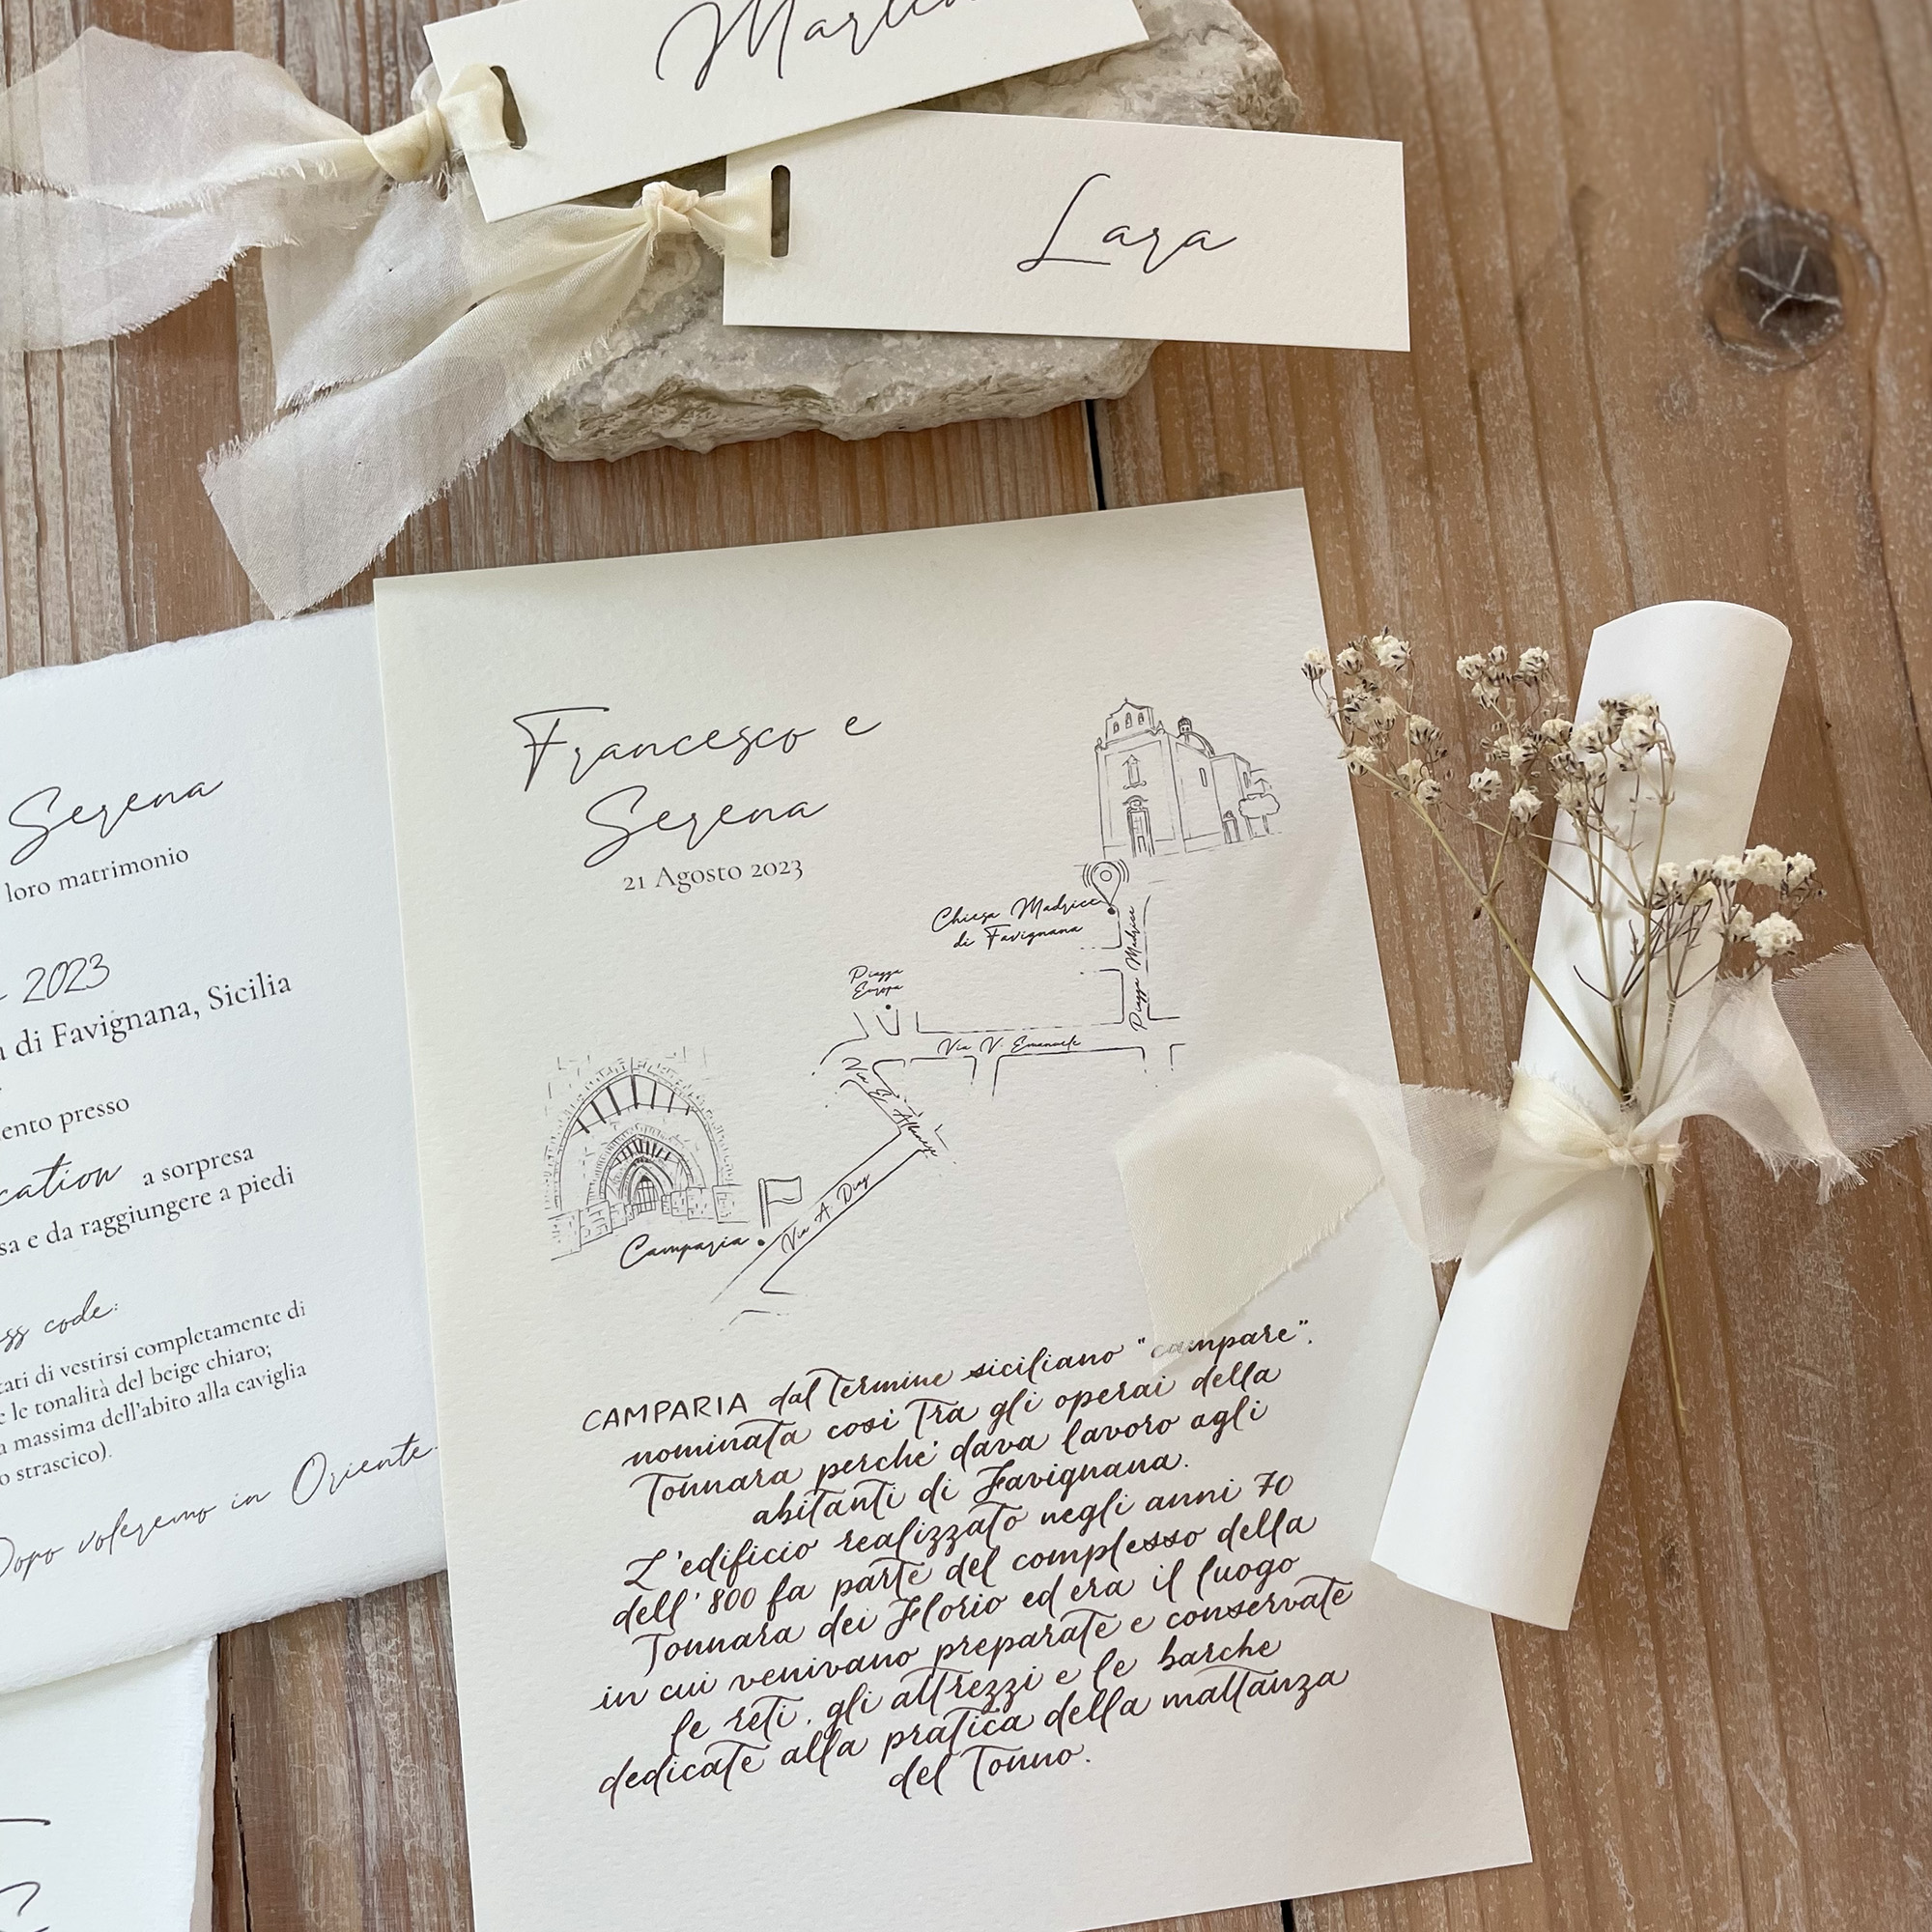 Lara
Serena
loro matrimonio
2023
di Favignana, Sicilia
presso
a sorpresa
e da raggiungere a piedi
code:
di vestirsi completamente di
le tonalità del beige chiaro;
massima dell'abito alla caviglia
strascico).
Dopo voleremo in Oriente.
Francesco e
Serena
21 Agosto 2023
Chiesa Madrice
di Favignana
Piazza Madrice
Piazza
Europa
Via V. Emanuele
Via G.
Camparia
Via A. Diaz
CAMPARIA dal termine siciliano "campare".
nominata così tra gli operai della
Tonnara perché dava lavoro agli
abitanti di Favignana.
L'edificio realizzato negli anni 70
dell' 800 fa parte del complesso della
Tonnara dei Florio ed era il luogo
in cui venivano preparate e conservate
le reti, gli attrezzi e le barche
dedicate alla pratica della mattanza
del Tonno.